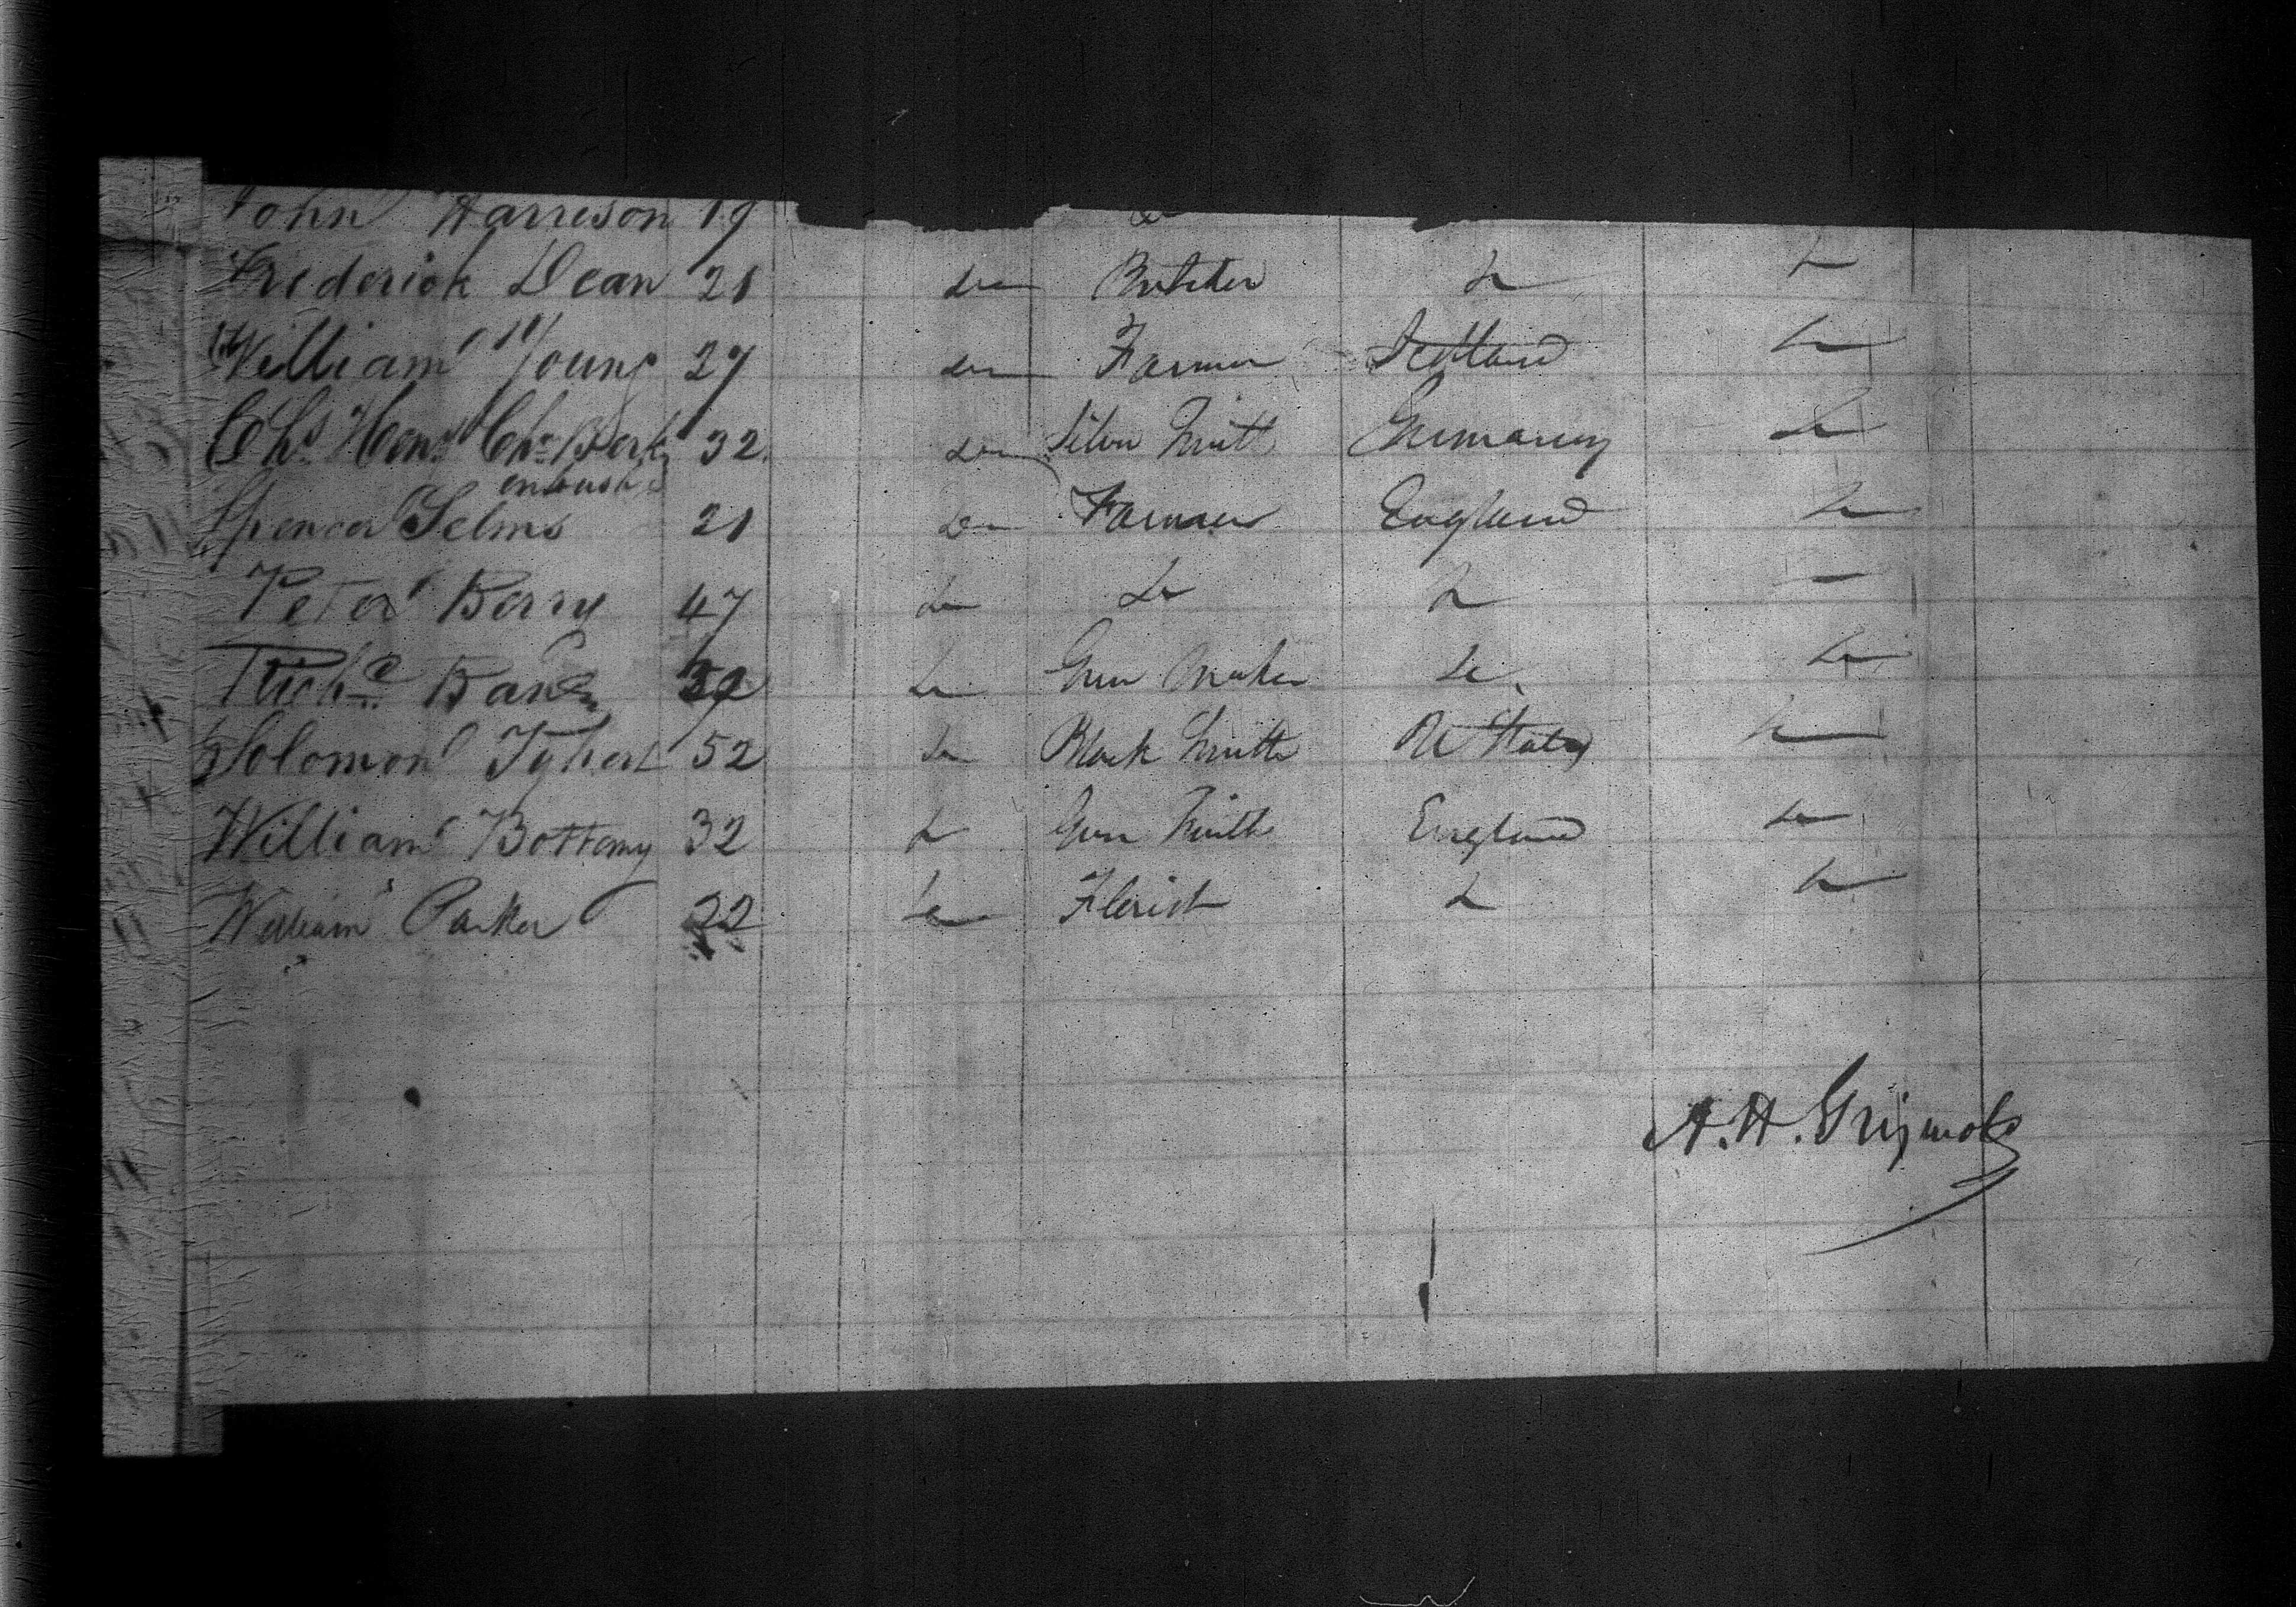 John Harrison 19
Frederick Dean 21 do Butcher do do
William Young 27 do Farmer Scotland do
Chs Hen. Chr Berk 32 do Silver Smith Germany do
enbush
Spencer Selms 21 do Farmer England do
Peter Berry 47 do do do —
Richd do Gun Maker do do
Solomon 52 do Black Smith U States do
William Bottomy 32 do Gun Smith England do
William Parker 22 do Florist do do
A. H.